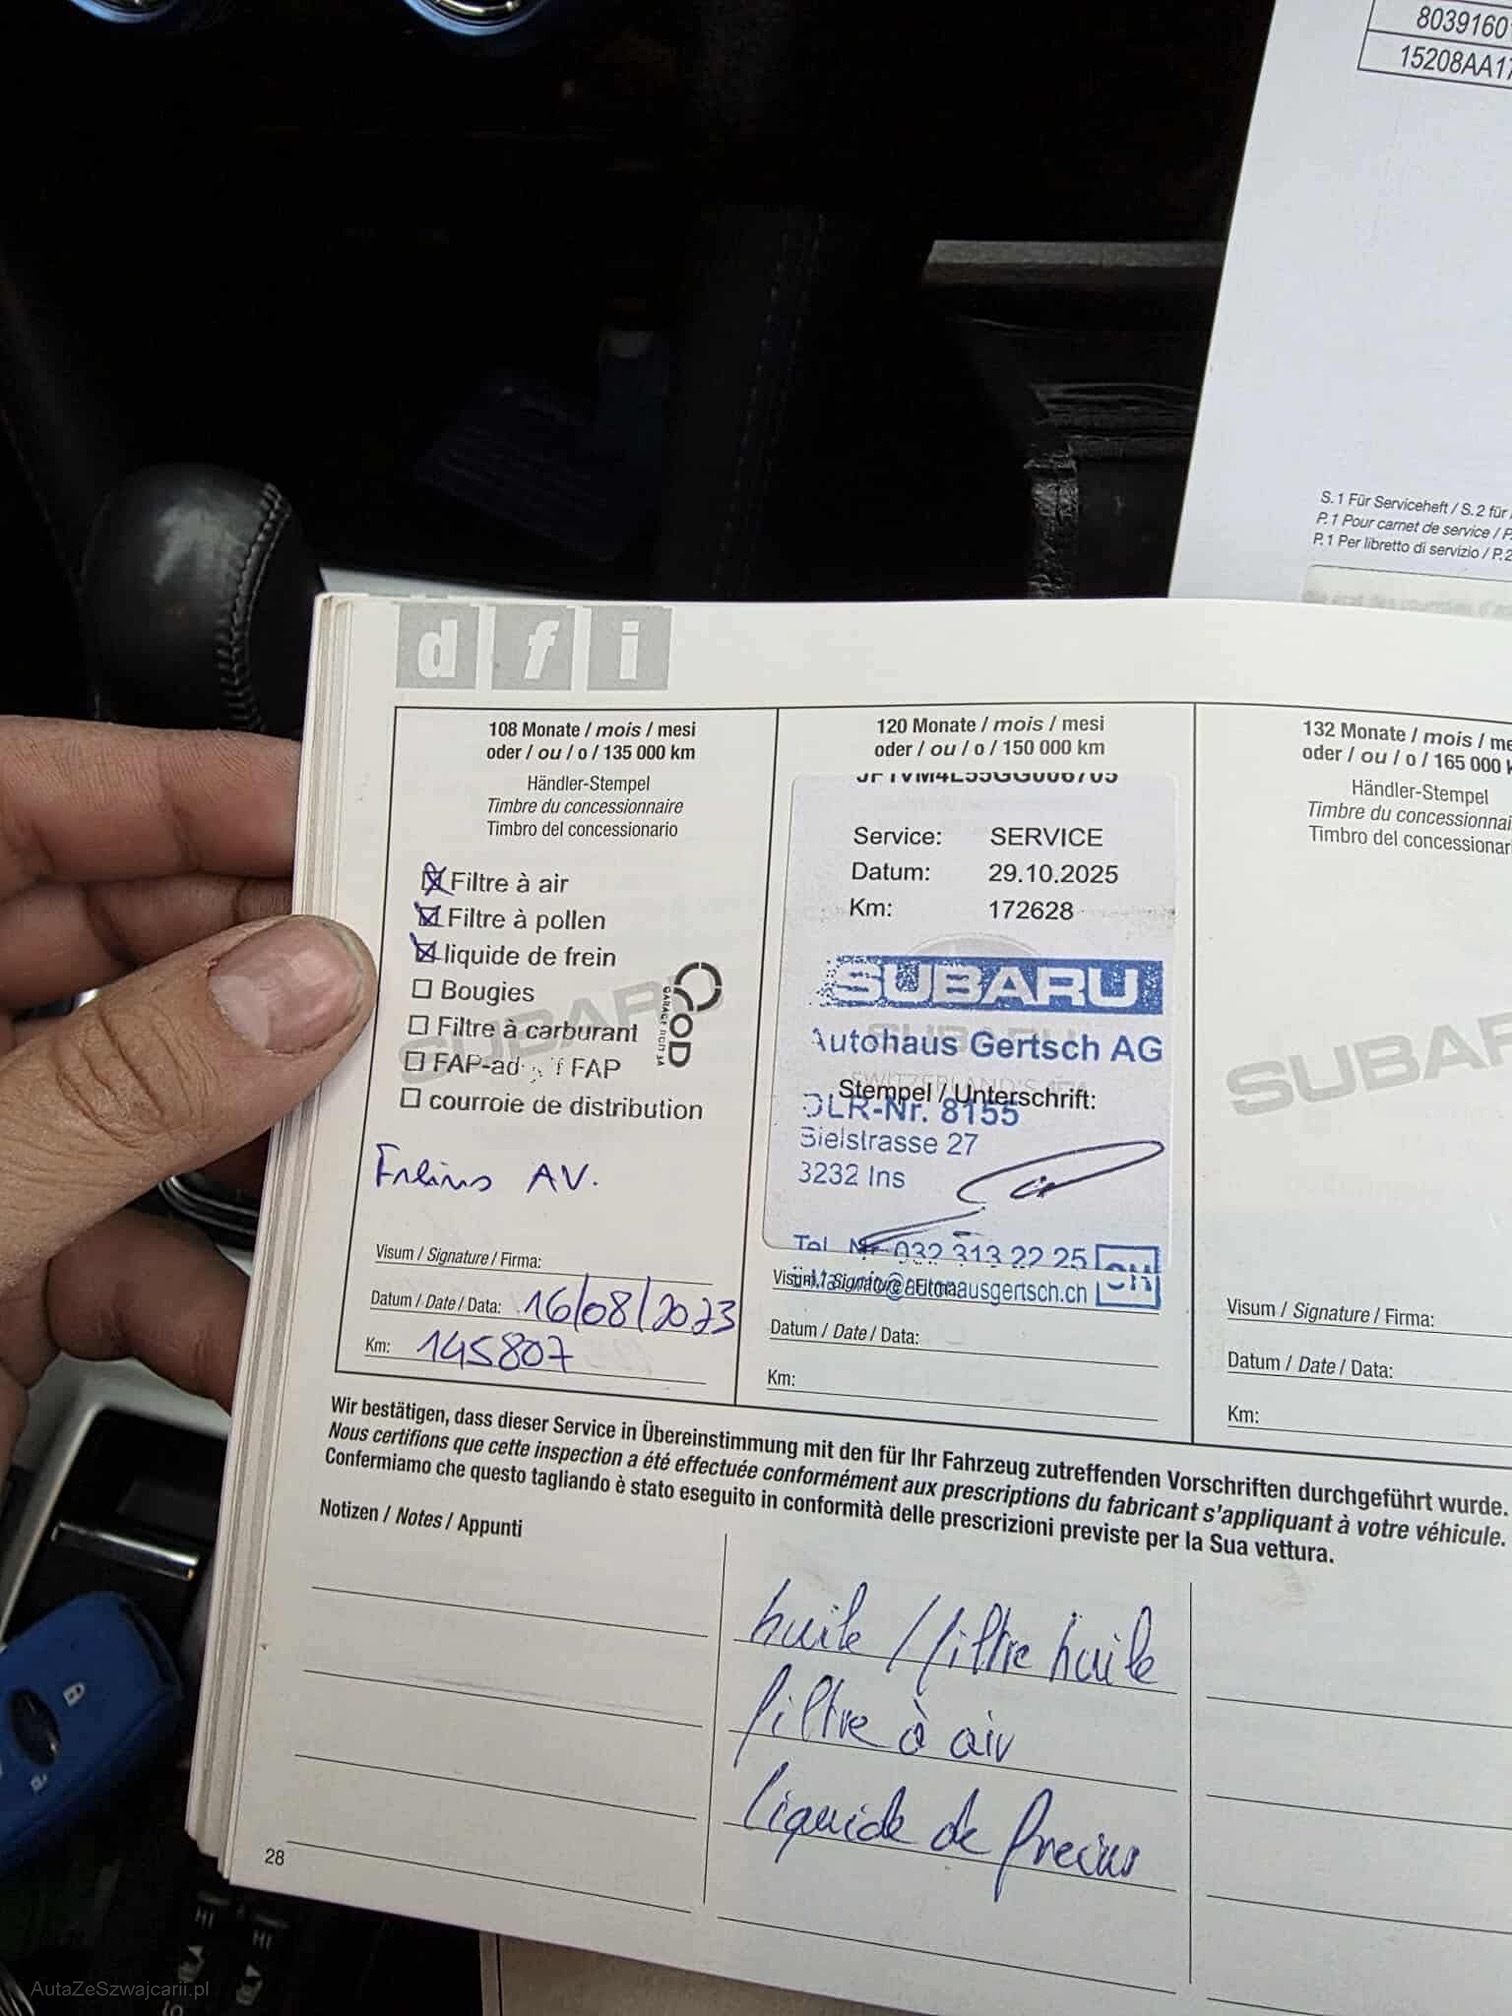 8039160
15208AA17
S. 1 Für Serviceheft / S. 2 für
P. 1 Pour carnet de service / P.
P. 1 Per libretto di servizio / P. 2
d f i
108 Monate / mois / mesi
oder / ou / o / 135 000 km
Händler-Stempel
Timbre du concessionnaire
Timbro del concessionario
Filtre à air
Filtre à pollen
liquide de frein
Bougies
Filtre à carburant
FAP-ad FAP
courroie de distribution
SUBARU
Freins AV.
Visum / Signature / Firma:
Datum / Date / Data: 16/08/2023
Km: 145807
120 Monate / mois / mesi
oder / ou / o / 150 000 km
Service: SERVICE
Datum: 29.10.2025
Km: 172628
SUBARU
Autohaus Gertsch AG
Stempel / Unterschrift:
DLR-Nr. 8155
Bielstrasse 27
3232 Ins
Tel. Nr. 032 313 22 25
autohausgertsch.ch
Visum / Signature / Firma:
Datum / Date / Data:
Km:
132 Monate / mois / me
oder / ou / o / 165 000 k
Händler-Stempel
Timbre du concessionnai
Timbro del concessionar
SUBAR
Visum / Signature / Firma:
Datum / Date / Data:
Km:
Wir bestätigen, dass dieser Service in Übereinstimmung mit den für Ihr Fahrzeug zutreffenden Vorschriften durchgeführt wurde.
Nous certifions que cette inspection a été effectuée conformément aux prescriptions du fabricant s'appliquant à votre véhicule.
Confermiamo che questo tagliando è stato eseguito in conformità delle prescrizioni previste per la Sua vettura.
Notizen / Notes / Appunti
huile / filtre huile
filtre à air
liquide de freins
28
HI
HI
AutaZeSzwajcarii.pl